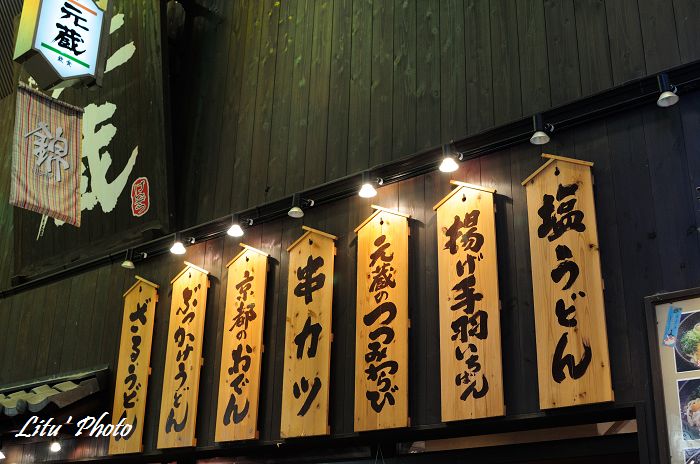 元蔵
元蔵
錦
塩うどん
揚げ手羽
元蔵のつつみわらび
串カツ
京都のおでん
ぶっかけうどん
ざるうどん
Litu' Photo